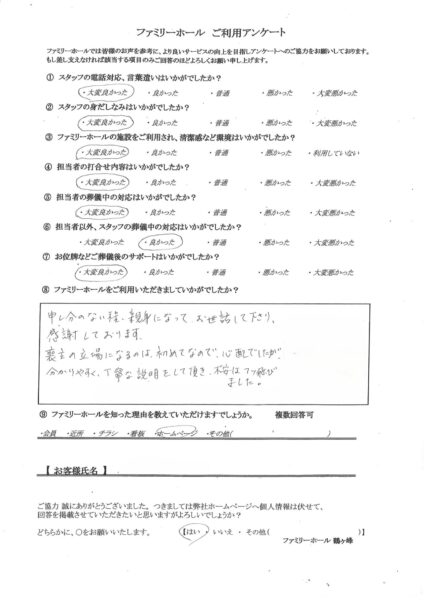 ファミリーホール　ご利用アンケート
ファミリーホールでは皆様のお声を参考に、より良いサービスの向上を目指しアンケートへのご協力をお願いしております。
もし差し支えなければ該当する項目のみご回答のほどよろしくお願い申し上げます。
① スタッフの電話対応、言葉遣いはいかがでしたか？
・大変良かった ・良かった ・普通 ・悪かった ・大変悪かった
② スタッフの身だしなみはいかがでしたか？
・大変良かった ・良かった ・普通 ・悪かった ・大変悪かった
③ ファミリーホールの施設をご利用され、清潔感など環境はいかがでしたか？
・大変良かった ・良かった ・普通 ・悪かった ・利用していない
④ 担当者の打合せ内容はいかがでしたか？
・大変良かった ・良かった ・普通 ・悪かった ・大変悪かった
⑤ 担当者の葬儀中の対応はいかがでしたか？
・大変良かった ・良かった ・普通 ・悪かった ・大変悪かった
⑥ 担当者以外、スタッフの葬儀中の対応はいかがでしたか？
・大変良かった ・良かった ・普通 ・悪かった ・大変悪かった
⑦ お位牌などご葬儀後のサポートはいかがでしたか？
・大変良かった ・良かった ・普通 ・悪かった ・大変悪かった
⑧ ファミリーホールをご利用いただきましていかがでしたか？
申し分のない程、親身になって、お世話して下さり、
感謝しております。
喪主の立場になるのは、初めてなので、心配でしたが、
分かりやすく、丁寧な説明をして頂き、
ました。
⑨ ファミリーホールを知った理由を教えていただけますでしょうか。　複数回答可
・会員 ・近所 ・チラシ ・看板 ・ホームページ ・その他(　　　)
【 お客様氏名 】
ご協力 誠にありがとうございました。つきましては弊社ホームページへ個人情報は伏せて、
回答を掲載させていただきたいと思いますがよろしいでしょうか？
どちらかに、○をお願いいたします。　【はい ・ いいえ ・ その他(　　　)】
ファミリーホール 鶴ヶ峰